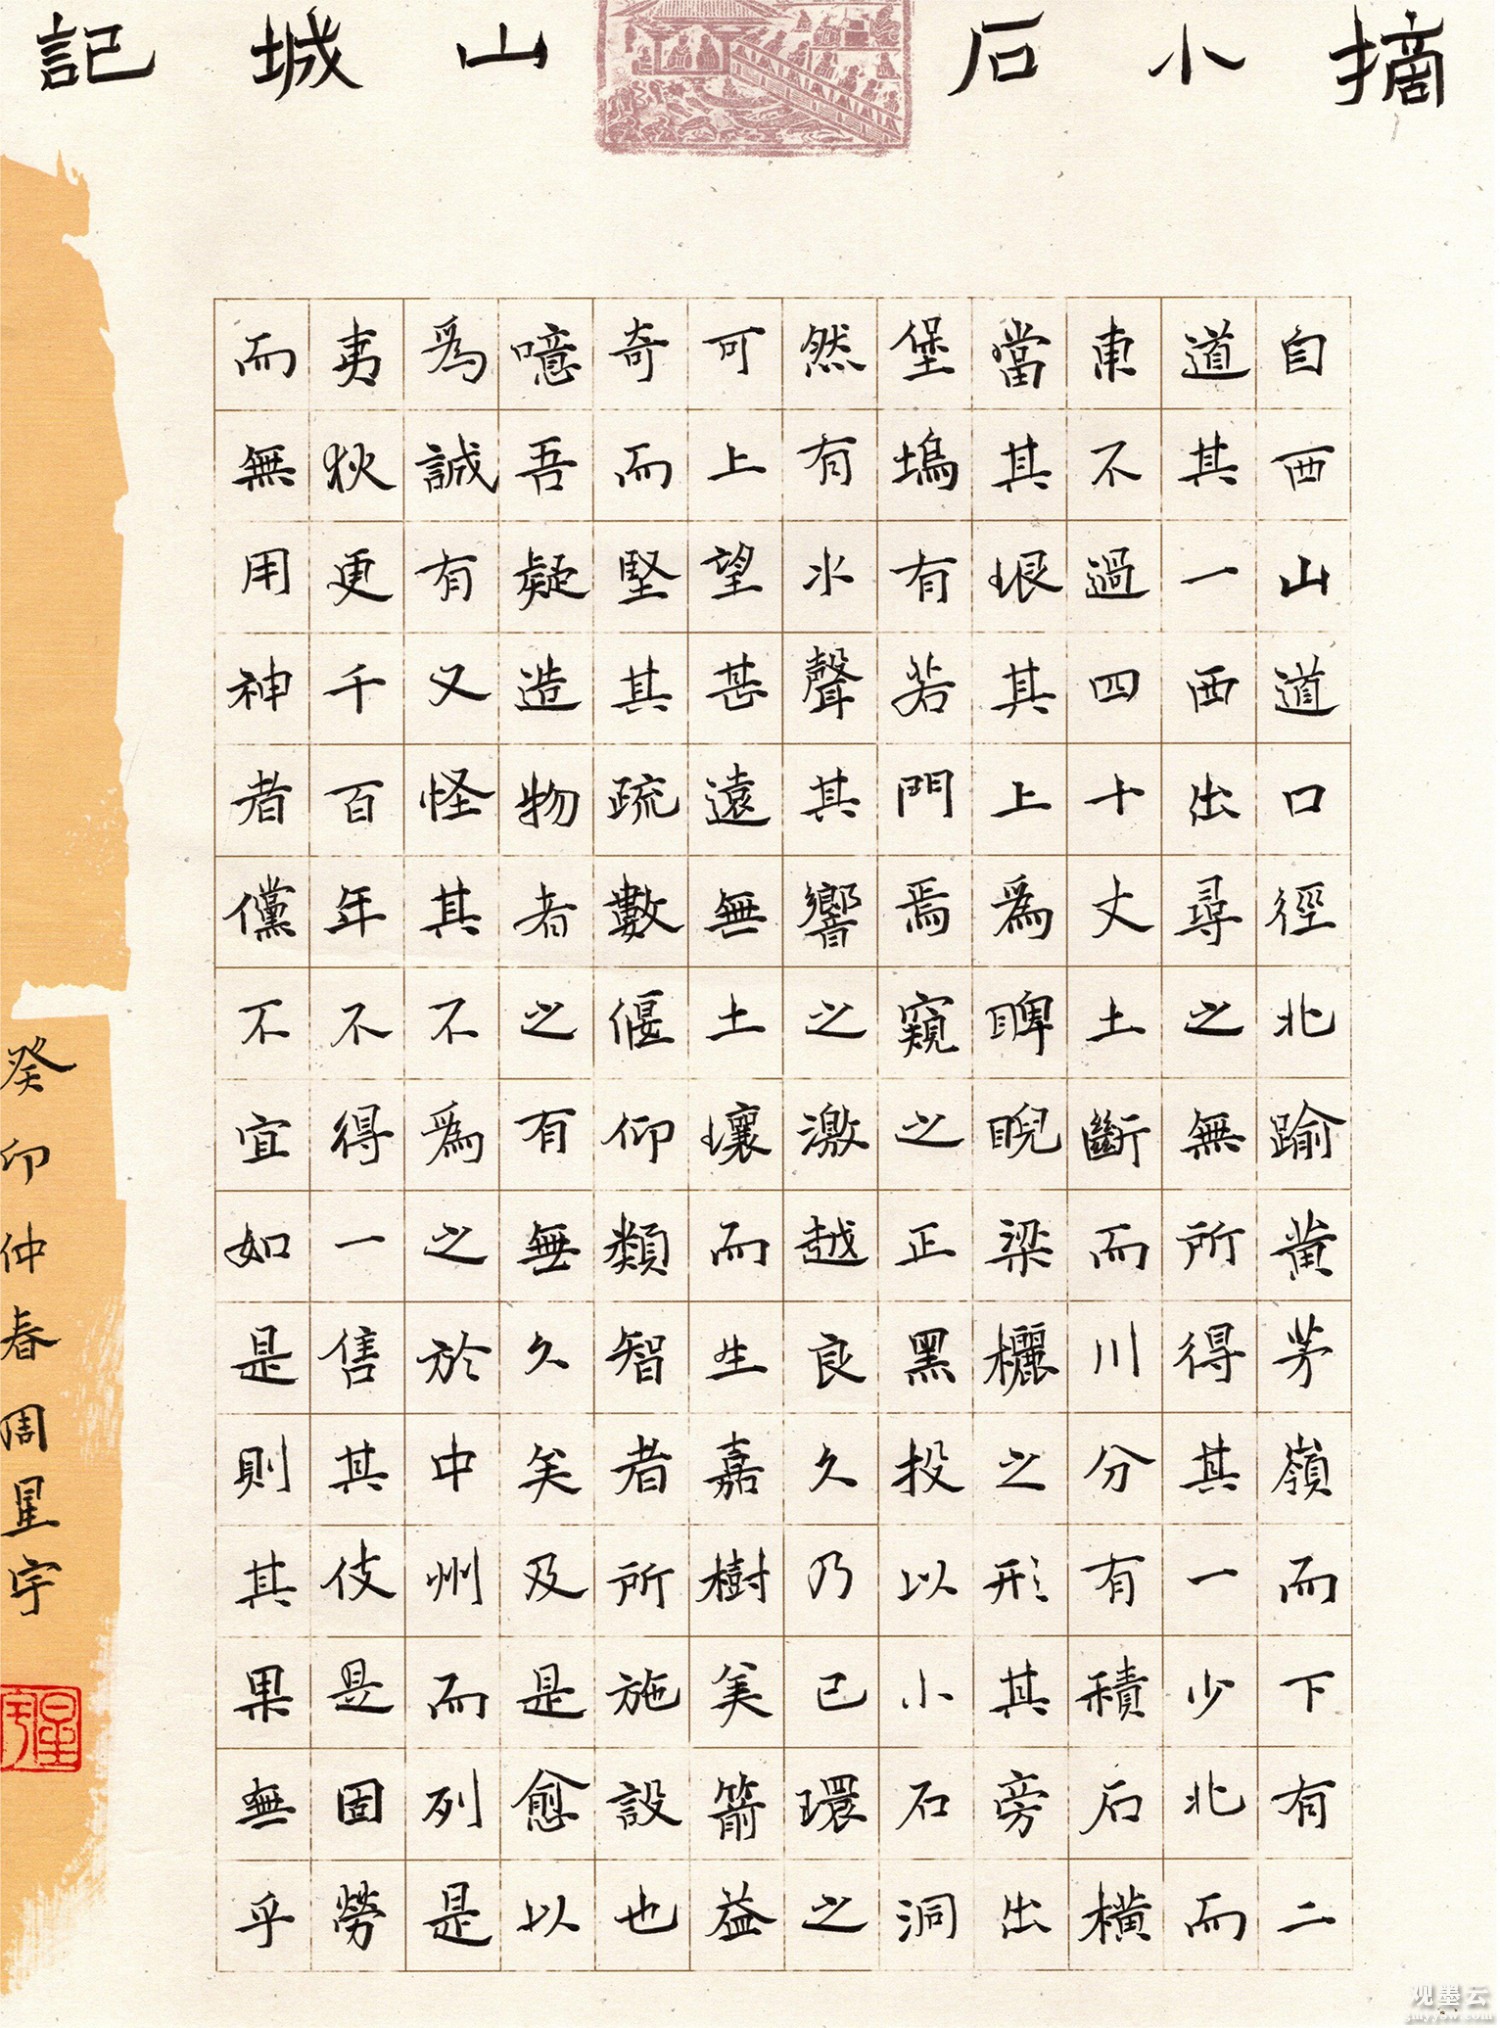 摘小石山城記
自西山道口徑北踰黄茅嶺而下有二
道其一西出尋之無所得其一少北而
東不過四十丈土斷而川分有積石横
當其垠其上爲睥睨梁欐之形其旁出
堡塢有若門焉窺之正黑投以小石洞
然有水聲其響之激越良久乃已環之
可上望甚遠無土壤而生嘉樹美箭益
奇而堅其疏數偃仰類智者所施設也
噫吾疑造物者之有無久矣及是愈以
爲誠有又怪其不爲之於中州而列是
夷狄更千百年不得一售其伎是固勞
而無用神者儻不宜如是則其果無乎
癸卯仲春周星宇
星宇
观墨云
gmyysw.com